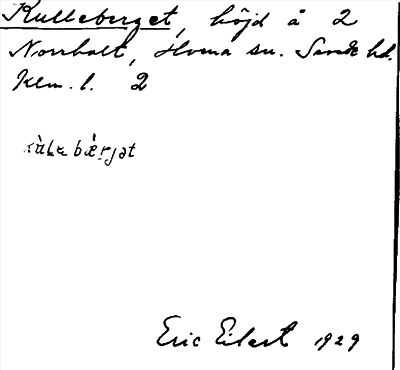 Kulleberget, höjd å 2
Norrhult, Hovma sn. Sunde hd.
Klm. l. 2
kùlabǽrjət
Eric Eilert 1929